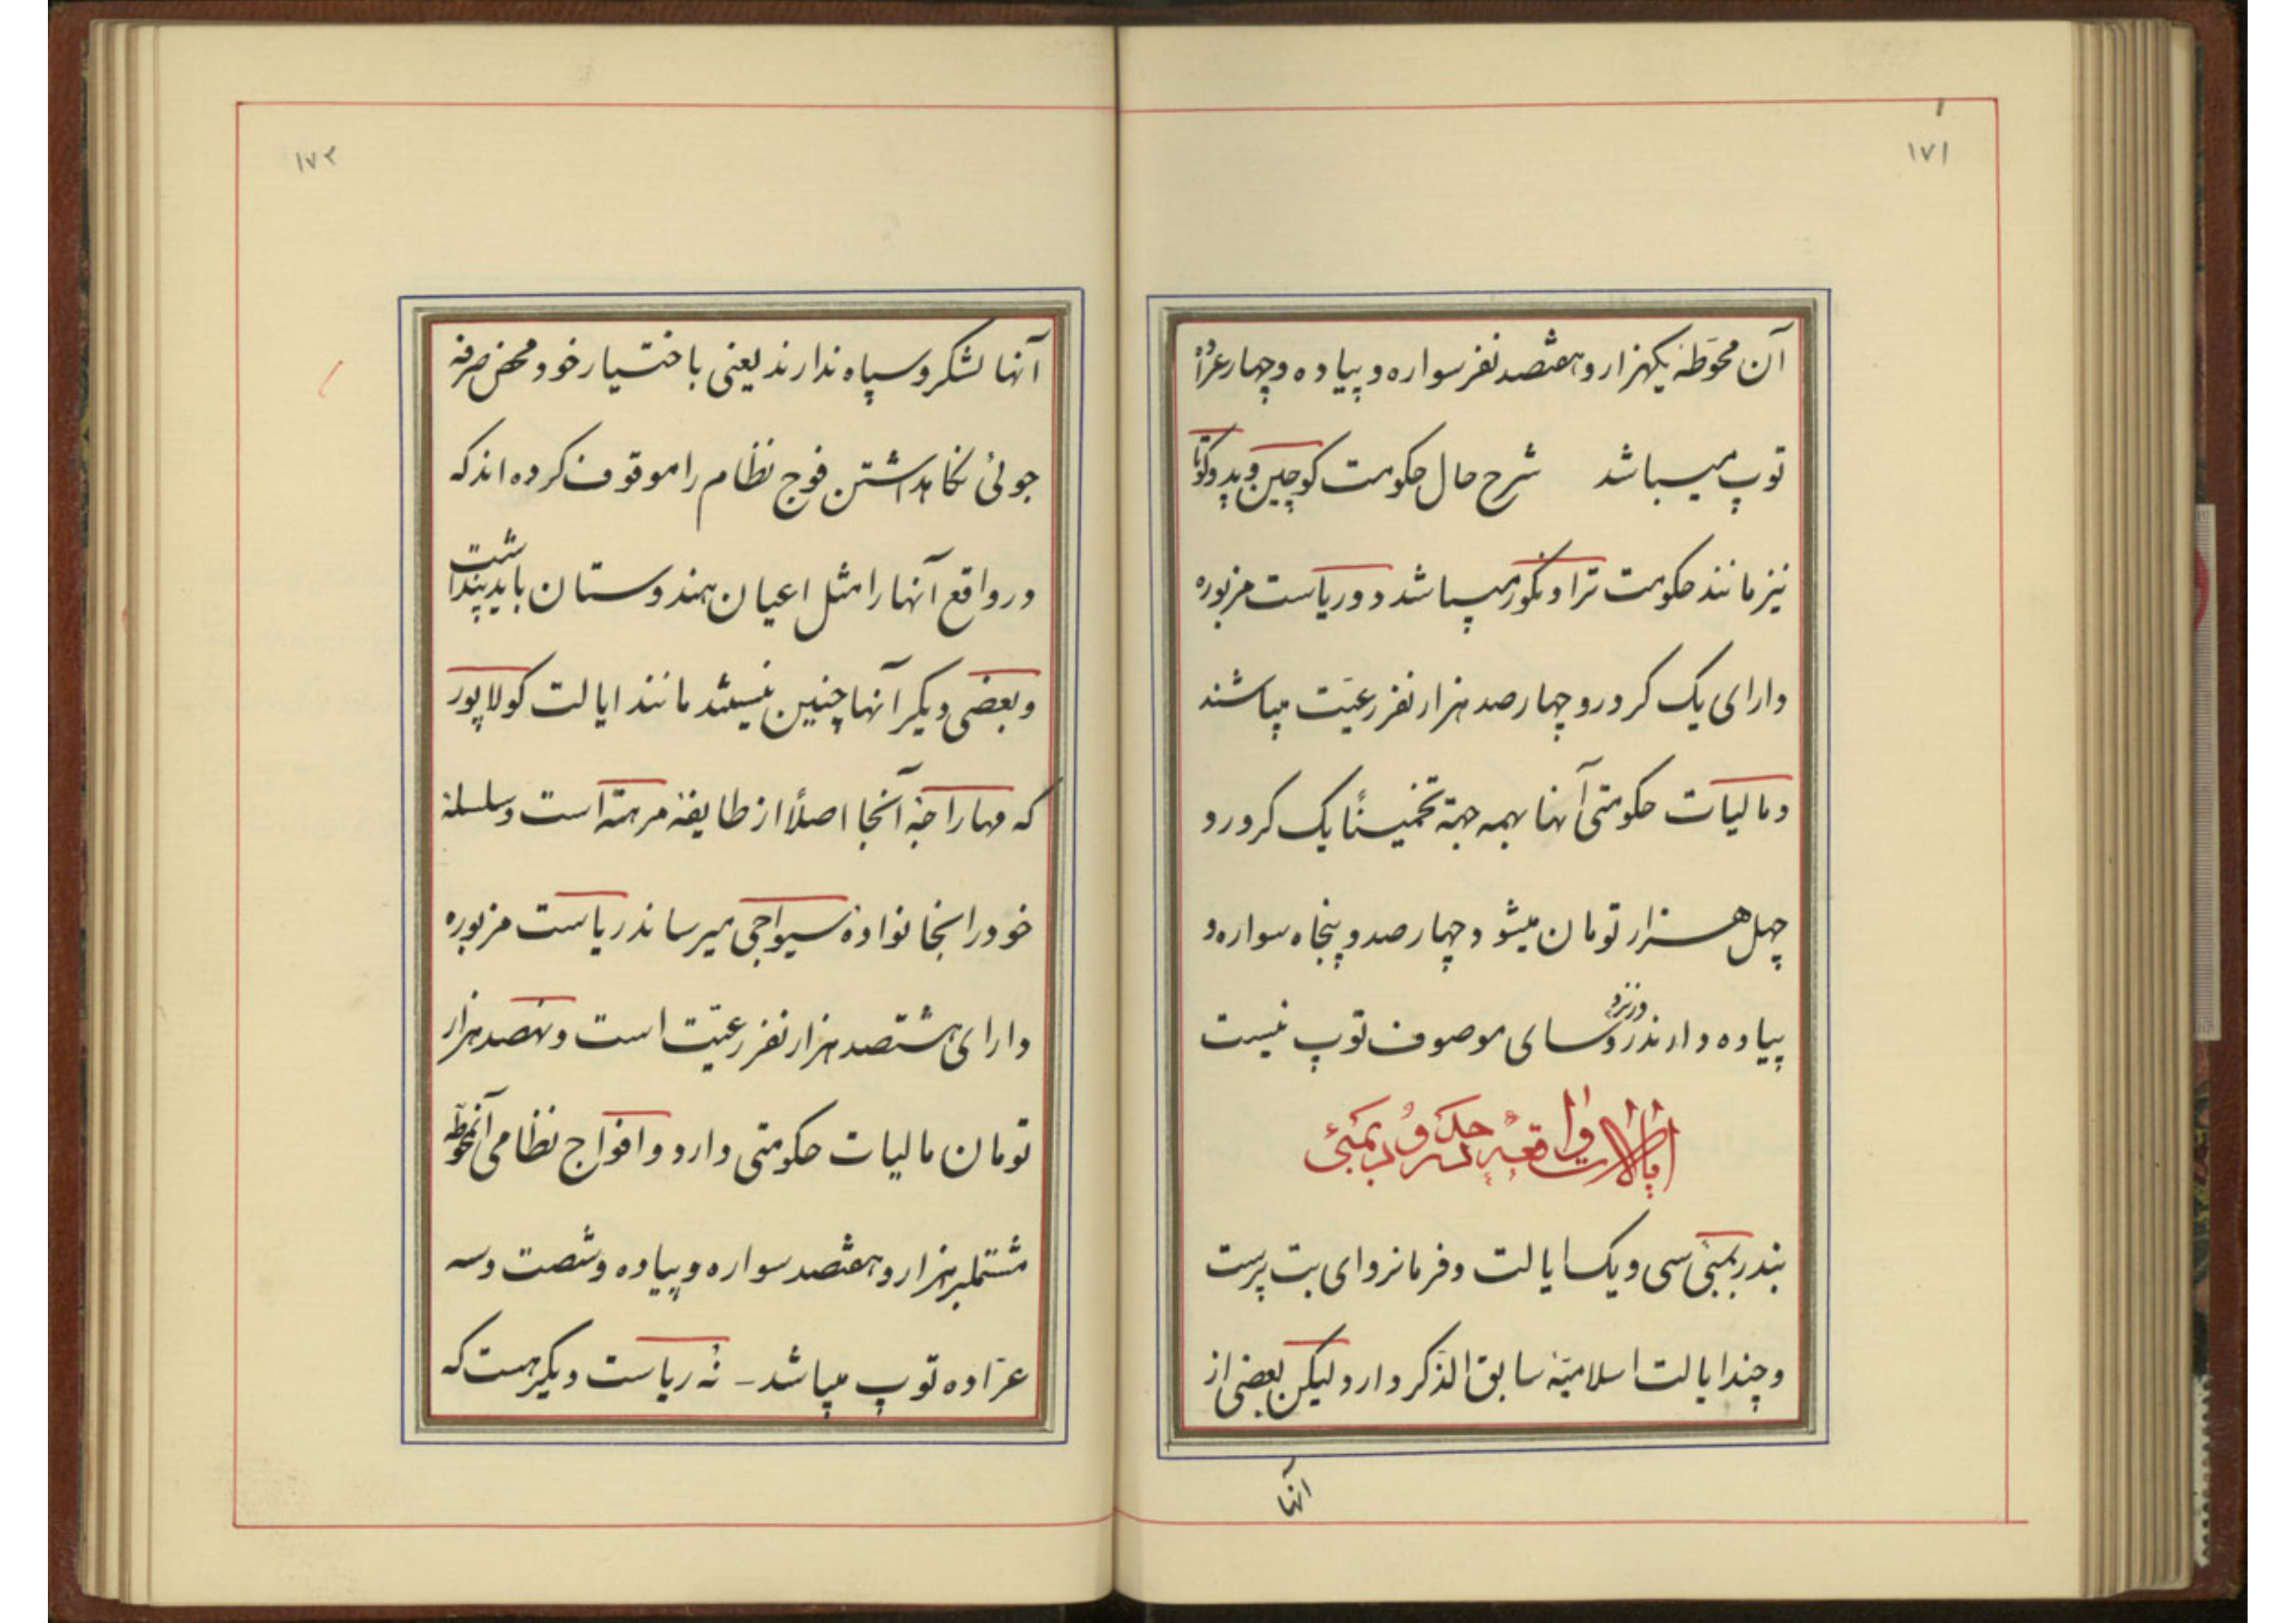 ۱۷۱
آن محوّطه یکهزار و هفتصد نفر سواره و پیاده و چهار عرّادهٔ
توپ میباشد شرح حال حکومت کوچین و پدوکوتا
نیز مانند حکومت تراونکور میباشد دو ریاست مزبوره
دارای یک کرور و چهار صد هزار نفر رعیّت میباشند
و مالیات حکومتی آنها همه جهة تخمیناً یک کرور و
چهل هزار تومان میشود چهار صد و پنجاه سواره و
پیاده دارند و نزد روسای موصوف توپ نیست
ایالات واقعه در حکمرانی بمبئی
بندر بمبئی سی و یک ایالت و فرمانروای بت پرست
و چند ایالت اسلامیّه سابق الذّکر دارد لیکن بعضی از
آنها
۱۷۲
آنها لشکر و سپاه ندارند یعنی باختیار خود و محض صرفه
جوئی نگاهداشتن فوج نظام را موقوف کرده اند که
در واقع آنها را مثل اعیان هندوستان باید پنداشت
و بعضی دیگر آنها چنین نیستند مانند ایالت کولاپور
که مهاراجه آنجا اصلاً از طایفهٔ مرهته است و سلسلهٔ
خود را بخانوادهٔ سیواجی میرساند ریاست مزبوره
دارای هشتصد هزار نفر رعیّت است و نهصد هزار
تومان مالیات حکومتی دارد و افواج نظامی آنمحوّطه
مشتملبر هزار و هفتصد سواره و پیاده و شصت و سه
عرّاده توپ میباشد - نُه ریاست دیگر هست که